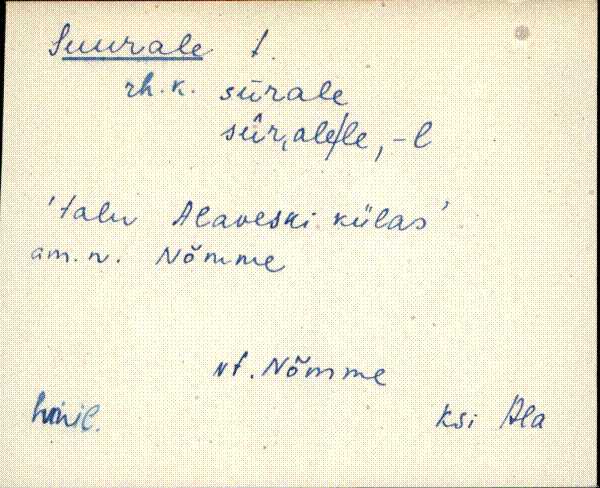 Suurale t.
rh. k. sūrale
sūr,ale/le, -l
'talu Alaveski külas'
am. n. Nõmme
vt. Nõmme
Ksi Ala